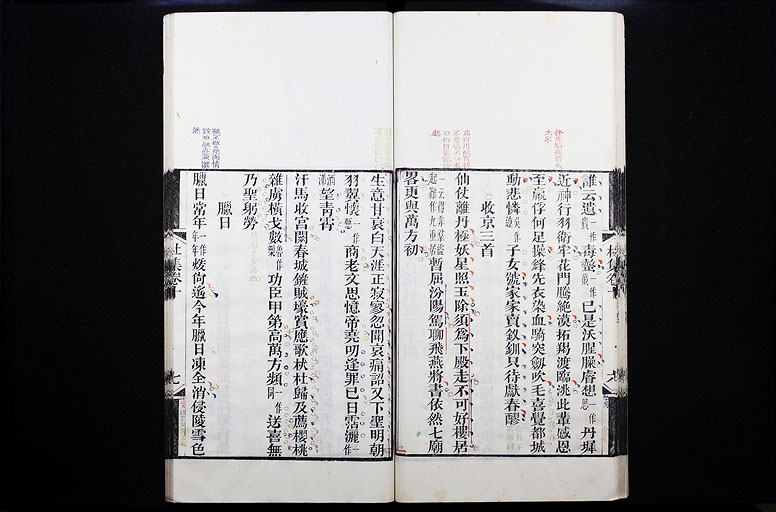 誰云遺一作貴毒螫一作蠚已是沃腥臊睿想一作思丹墀
近神行羽衛牢花門騰絕漠拓羯渡臨洮此輩感恩
至羸俘何足操鋒先衣染血騎突劒吹毛喜覺都城
動悲憐一作連子女號家家賣釵釧只待獻春醪
收京三首
仙仗離丹極妖星照玉除須爲下殿走不可好樓居
暫屈汾陽駕聊飛燕將書依然七廟
畧更與萬方初
生意甘衰白天涯正寂寥忽聞哀痛詔又下聖明朝
羽翼懷一作商老文思憶帝堯叨逢罪己日霑灑一作
望青霄
汗馬收宮闕春城鏟賊壕賞應歌杕杜歸及薦櫻桃
雜虜橫戈數功臣甲第高萬方頻一作送喜無
乃聖躬勞
臘日
臘日常年一作年年煖尚遙今年臘日凍全消侵陵雪色
杜集卷十
七